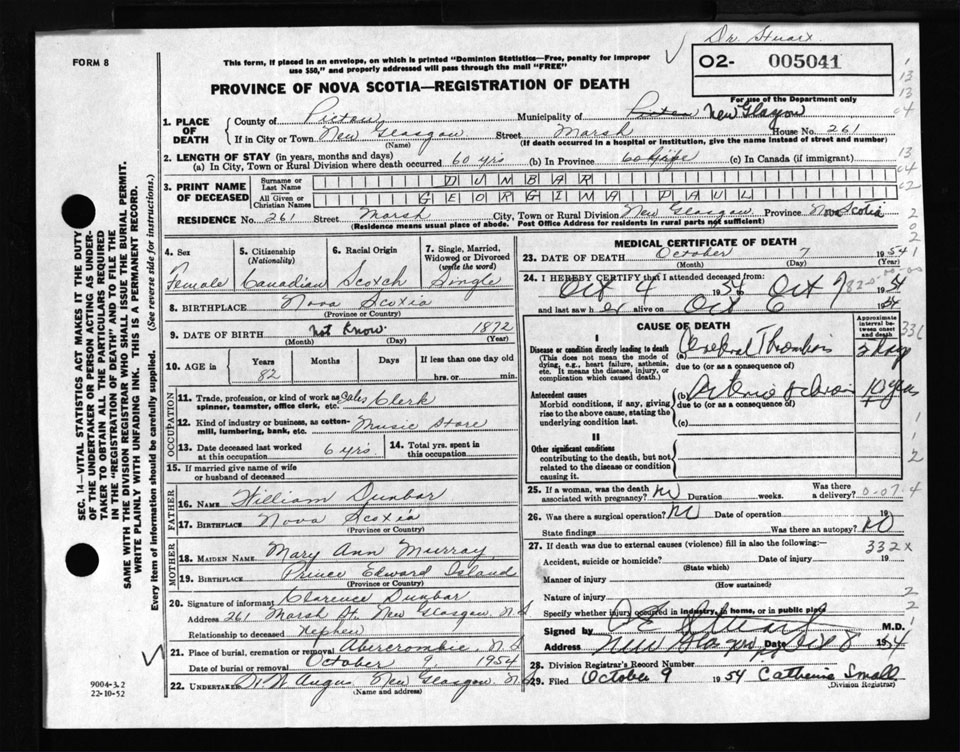 Dr. Stuart
FORM 8
This form, if placed in an envelope, on which is printed "Dominion Statistics—Free, penalty for improper
use $50," and properly addressed will pass through the mail "FREE"
O2- 005041
For use of the Department only
PROVINCE OF NOVA SCOTIA—REGISTRATION OF DEATH
1. PLACE OF DEATH
County of Pictou Municipality of Pictou New Glasgow
If in City or Town New Glasgow Street Marsh House No. 261
(Name) (If death occurred in a hospital or institution, give the name instead of street and number)
2. LENGTH OF STAY (in years, months and days)
(a) In City, Town or Rural Division where death occurred 60 yrs (b) In Province (c) In Canada (if immigrant)
3. PRINT NAME OF DECEASED
Surname or Last Name DUNBAR
All Given or Christian Names GEORGINA PAUL
RESIDENCE No. 261 Street Marsh City, Town or Rural Division New Glasgow Province Nova Scotia
(Residence means usual place of abode. Post Office Address for residents in rural parts not sufficient)
4. Sex Female
5. Citizenship (Nationality) Canadian
6. Racial Origin Scotch
7. Single, Married, Widowed or Divorced (write the word) Single
8. BIRTHPLACE Nova Scotia
(Province or Country)
9. DATE OF BIRTH not Know 1872
(Month) (Day) (Year)
10. AGE Years Months Days If less than one day old
82 hrs. or min.
OCCUPATION
11. Trade, profession, or kind of work as spinner, teamster, office clerk, etc. Sales Clerk
12. Kind of industry or business, as cotton-mill, lumbering, bank, etc. Music Store
13. Date deceased last worked at this occupation 6 yrs.
14. Total yrs. spent in this occupation
15. If married give name of wife or husband of deceased
FATHER
16. NAME William Dunbar
17. BIRTHPLACE Nova Scotia
(Province or Country)
MOTHER
18. MAIDEN NAME Mary Ann Murray
19. BIRTHPLACE Prince Edward Island
(Province or Country)
20. Signature of informant Clarence Dunbar
Address 261 Marsh St. New Glasgow, N.S
Relationship to deceased Nephew
21. Place of burial, cremation or removal Abercrombie, N.S
Date of burial or removal October 9, 1954
22. UNDERTAKER Angus New Glasgow, N.S
(Name and address)
MEDICAL CERTIFICATE OF DEATH
23. DATE OF DEATH October 7 1954
(Month) (Day) (Year)
24. I HEREBY CERTIFY that I attended deceased from
Oct 4 1954 to Oct 7 1954
and last saw her alive on Oct 6 1954
CAUSE OF DEATH
Approximate interval between onset and death
I
Disease or condition directly leading to death
(This does not mean the mode of dying, e.g., heart failure, asthenia, etc. It means the disease, injury, or complication which caused death.)
(a) Cerebral Thrombosis 3 days
due to (or as a consequence of)
Antecedent causes
Morbid conditions, if any, giving rise to the above cause, stating the underlying condition last.
(b) 10 years
due to (or as a consequence of)
(c)
II
Other significant conditions
contributing to the death, but not related to the disease or condition causing it.
25. If a woman, was the death associated with pregnancy? No Duration weeks. Was there a delivery?
26. Was there a surgical operation? No Date of operation 19
State findings Was there an autopsy? No
27. If death was due to external causes (violence) fill in also the following:—
Accident, suicide or homicide? Date of injury 19
(State which)
Manner of injury
(How sustained)
Nature of injury
Specify whether injury occurred in industry, in home, or in public place
Signed by Stuart M.D.
Address New Glasgow Date Oct 8 1954
28. Division Registrar's Record Number
29. Filed October 9 1954 Catherine Small
(Division Registrar)
332x
9004-3.2
22-10-52
SEC. 14—VITAL STATISTICS ACT MAKES IT THE DUTY
OF THE UNDERTAKER OR PERSON ACTING AS UNDER-
TAKER TO OBTAIN ALL THE PARTICULARS REQUIRED
IN THE "REGISTRATION OF DEATH" AND TO FILE THE
SAME WITH THE DIVISION REGISTRAR WHO SHALL ISSUE THE BURIAL PERMIT.
WRITE PLAINLY WITH UNFADING INK. THIS IS A PERMANENT RECORD.
Every item of information should be carefully supplied. (See reverse side for instructions.)